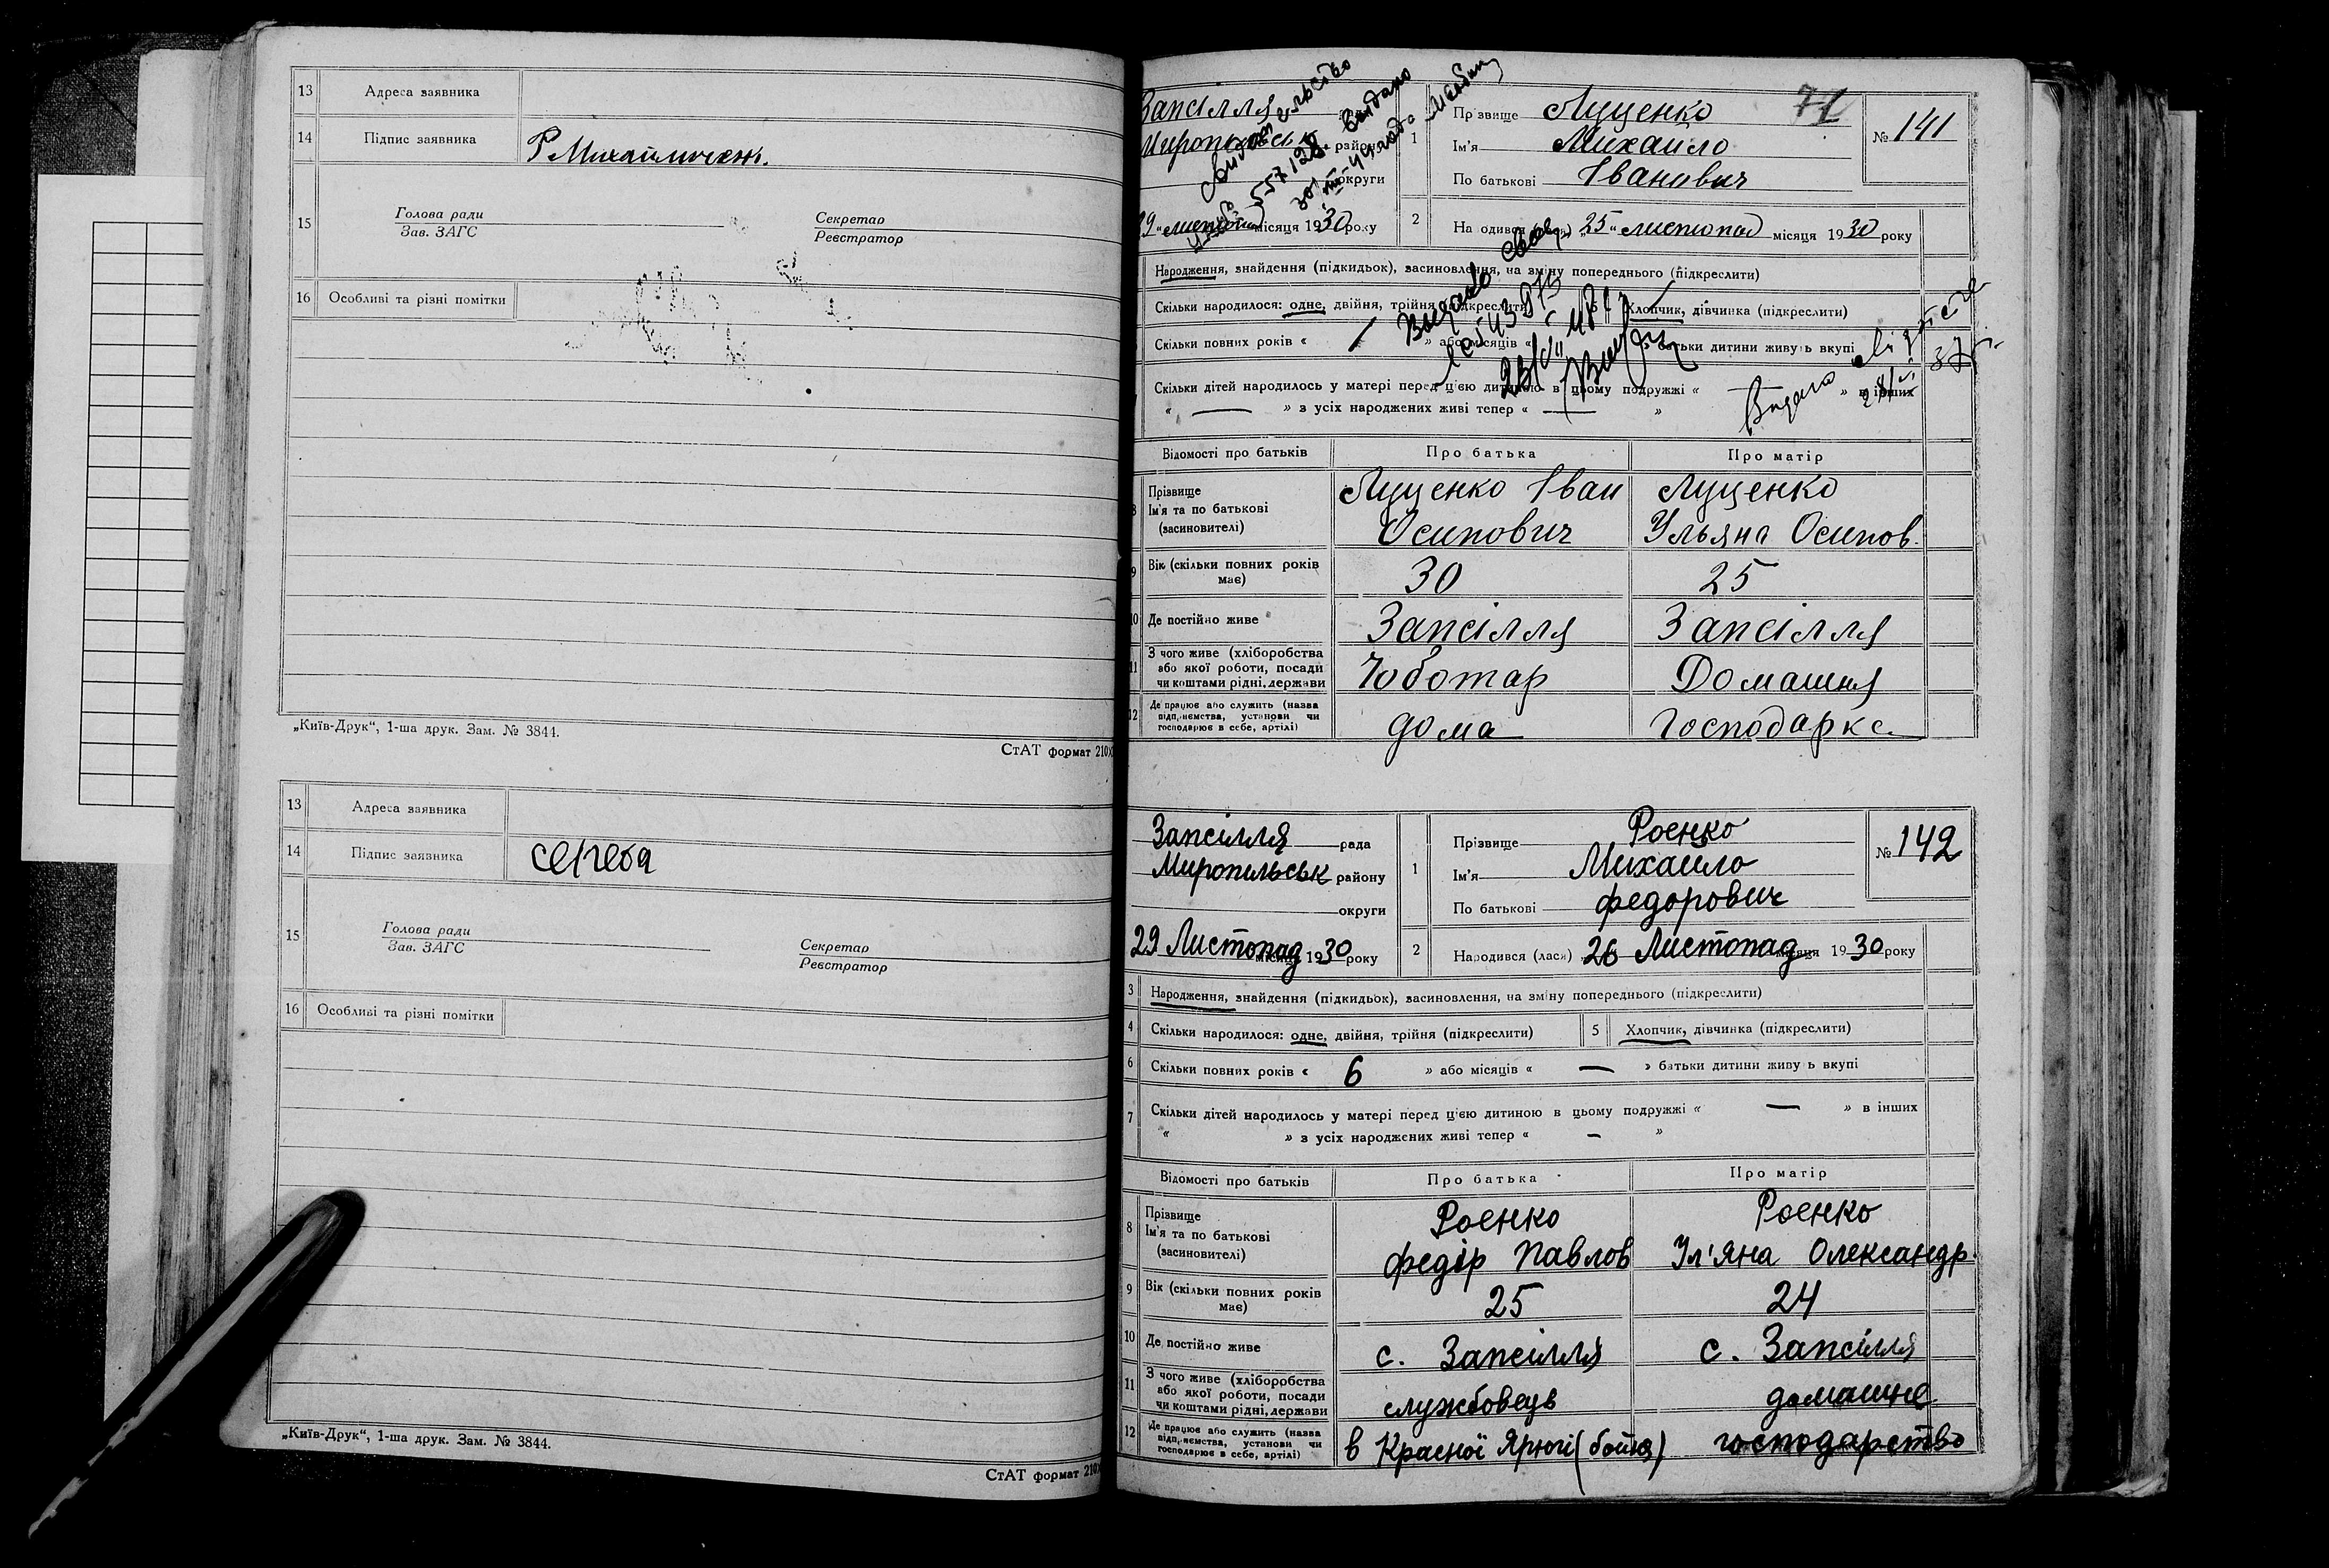 13 Адреса заявника
14 Підпис заявника Р Михайличен.
15 Голова ради Секретар
Зав. ЗАГС Реєстратор
16 Особливі та різні помітки
„Київ-Друк“, 1-ша друк. Зам. № 3844.
СтАТ формат 210
13 Адреса заявника
14 Підпис заявника
15 Голова ради Секретар
Зав. ЗАГС Реєстратор
16 Особливі та різні помітки
„Київ-Друк“, 1-ша друк. Зам. № 3844.
СтАТ формат 210
Запсілля
району
округи
29 місяця 1930 року
1 Прізвище Луценко 71
Ім'я Михайло
По батькові Іванович
№ 141
2 25 „ листопад місяця 1930 року
Народження, знайдення (підкидьок), засиновлення, на зміну попереднього (підкреслити)
Скільки народилося: одне, двійня, трійня Хлопчик, дівчинка (підкреслити)
Скільки повних років « » або місяців « батьки дитини живуть вкупі
Скільки дітей народилось у матері перед цією дитиною в цьому подружжі « » в інших
« — » з усіх народжених живі тепер « — »
Відомості про батьків Про батька Про матір
8 Прізвище Ім'я та по батькові (засиновителі)
Луценко Іван Осипович
Луценко Ульяна Осипов.
9 Вік (скільки повних років має) 30 25
10 Де постійно живе Запсілля Запсілля
11 З чого живе (хліборобства або якої роботи, посади чи коштами рідні, держави Чоботар Домашня
12 Де працює або служить (назва підприємства, установи чи господарює в себе, артілі) дома господарка
Запсілля рада
Миропильськ району
округи
29 Листопад 1930 року
1 Прізвище Роенко
Ім'я Михайло
По батькові федорович
№ 142
2 Народився (лася) 26 Листопад місяця 1930 року
3 Народження, знайдення (підкидьок), засиновлення, на зміну попереднього (підкреслити)
4 Скільки народилося: одне, двійня, трійня (підкреслити) 5 Хлопчик, дівчинка (підкреслити)
6 Скільки повних років « 6 » або місяців « — » батьки дитини живуть вкупі
7 Скільки дітей народилось у матері перед цією дитиною в цьому подружжі « — » в інших
« » з усіх народжених живі тепер « — »
Відомості про батьків Про батька Про матір
8 Прізвище Ім'я та по батькові (засиновителі)
Роенко федір Павлов
Роенко Ул'яна Олександр.
9 Вік (скільки повних років має) 25 24
10 Де постійно живе с. Запсілля с. Запсілля
11 З чого живе (хліборобства або якої роботи, посади чи коштами рідні, держави службовець домашне
12 Де працює або служить (назва підприємства, установи чи господарює в себе, артілі) в Красної Ярюгі господарство